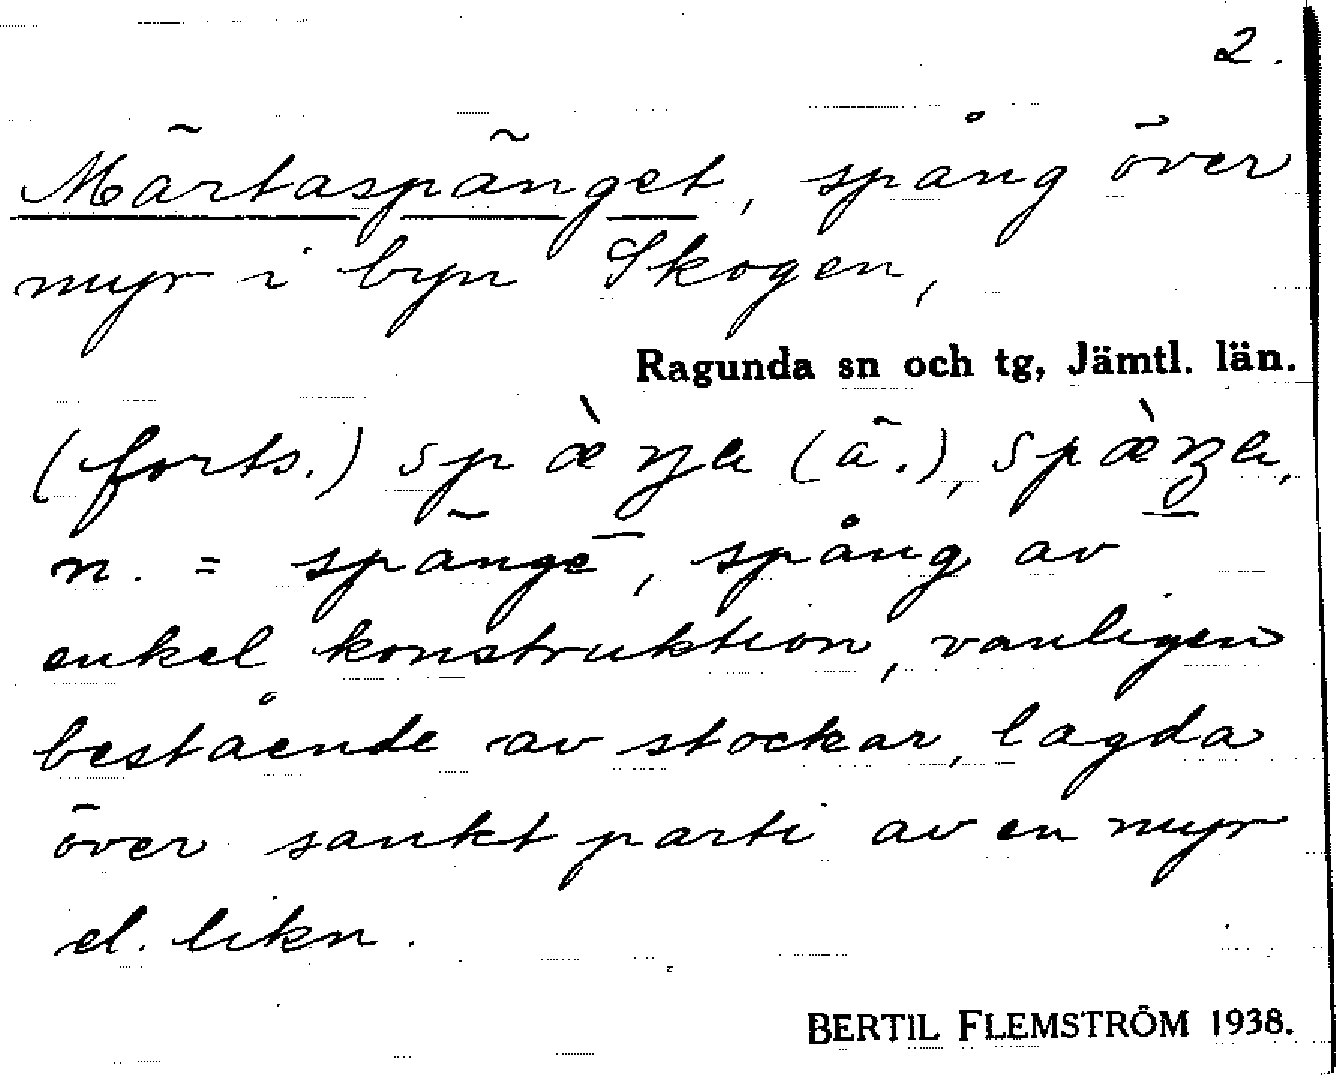 2.
Märtaspänget, spång över
myr i byn Skogen,
Ragunda sn och tg, Jämtl. län.
(forts.) spæ̀ŋa (ä.), spæ̀ŋa,
n. = spänge, spång av
enkel konstruktion, vanligen
bestående av stockar, lagda
över sankt parti av en myr
el. likn.
BERTIL FLEMSTRÖM 1938.